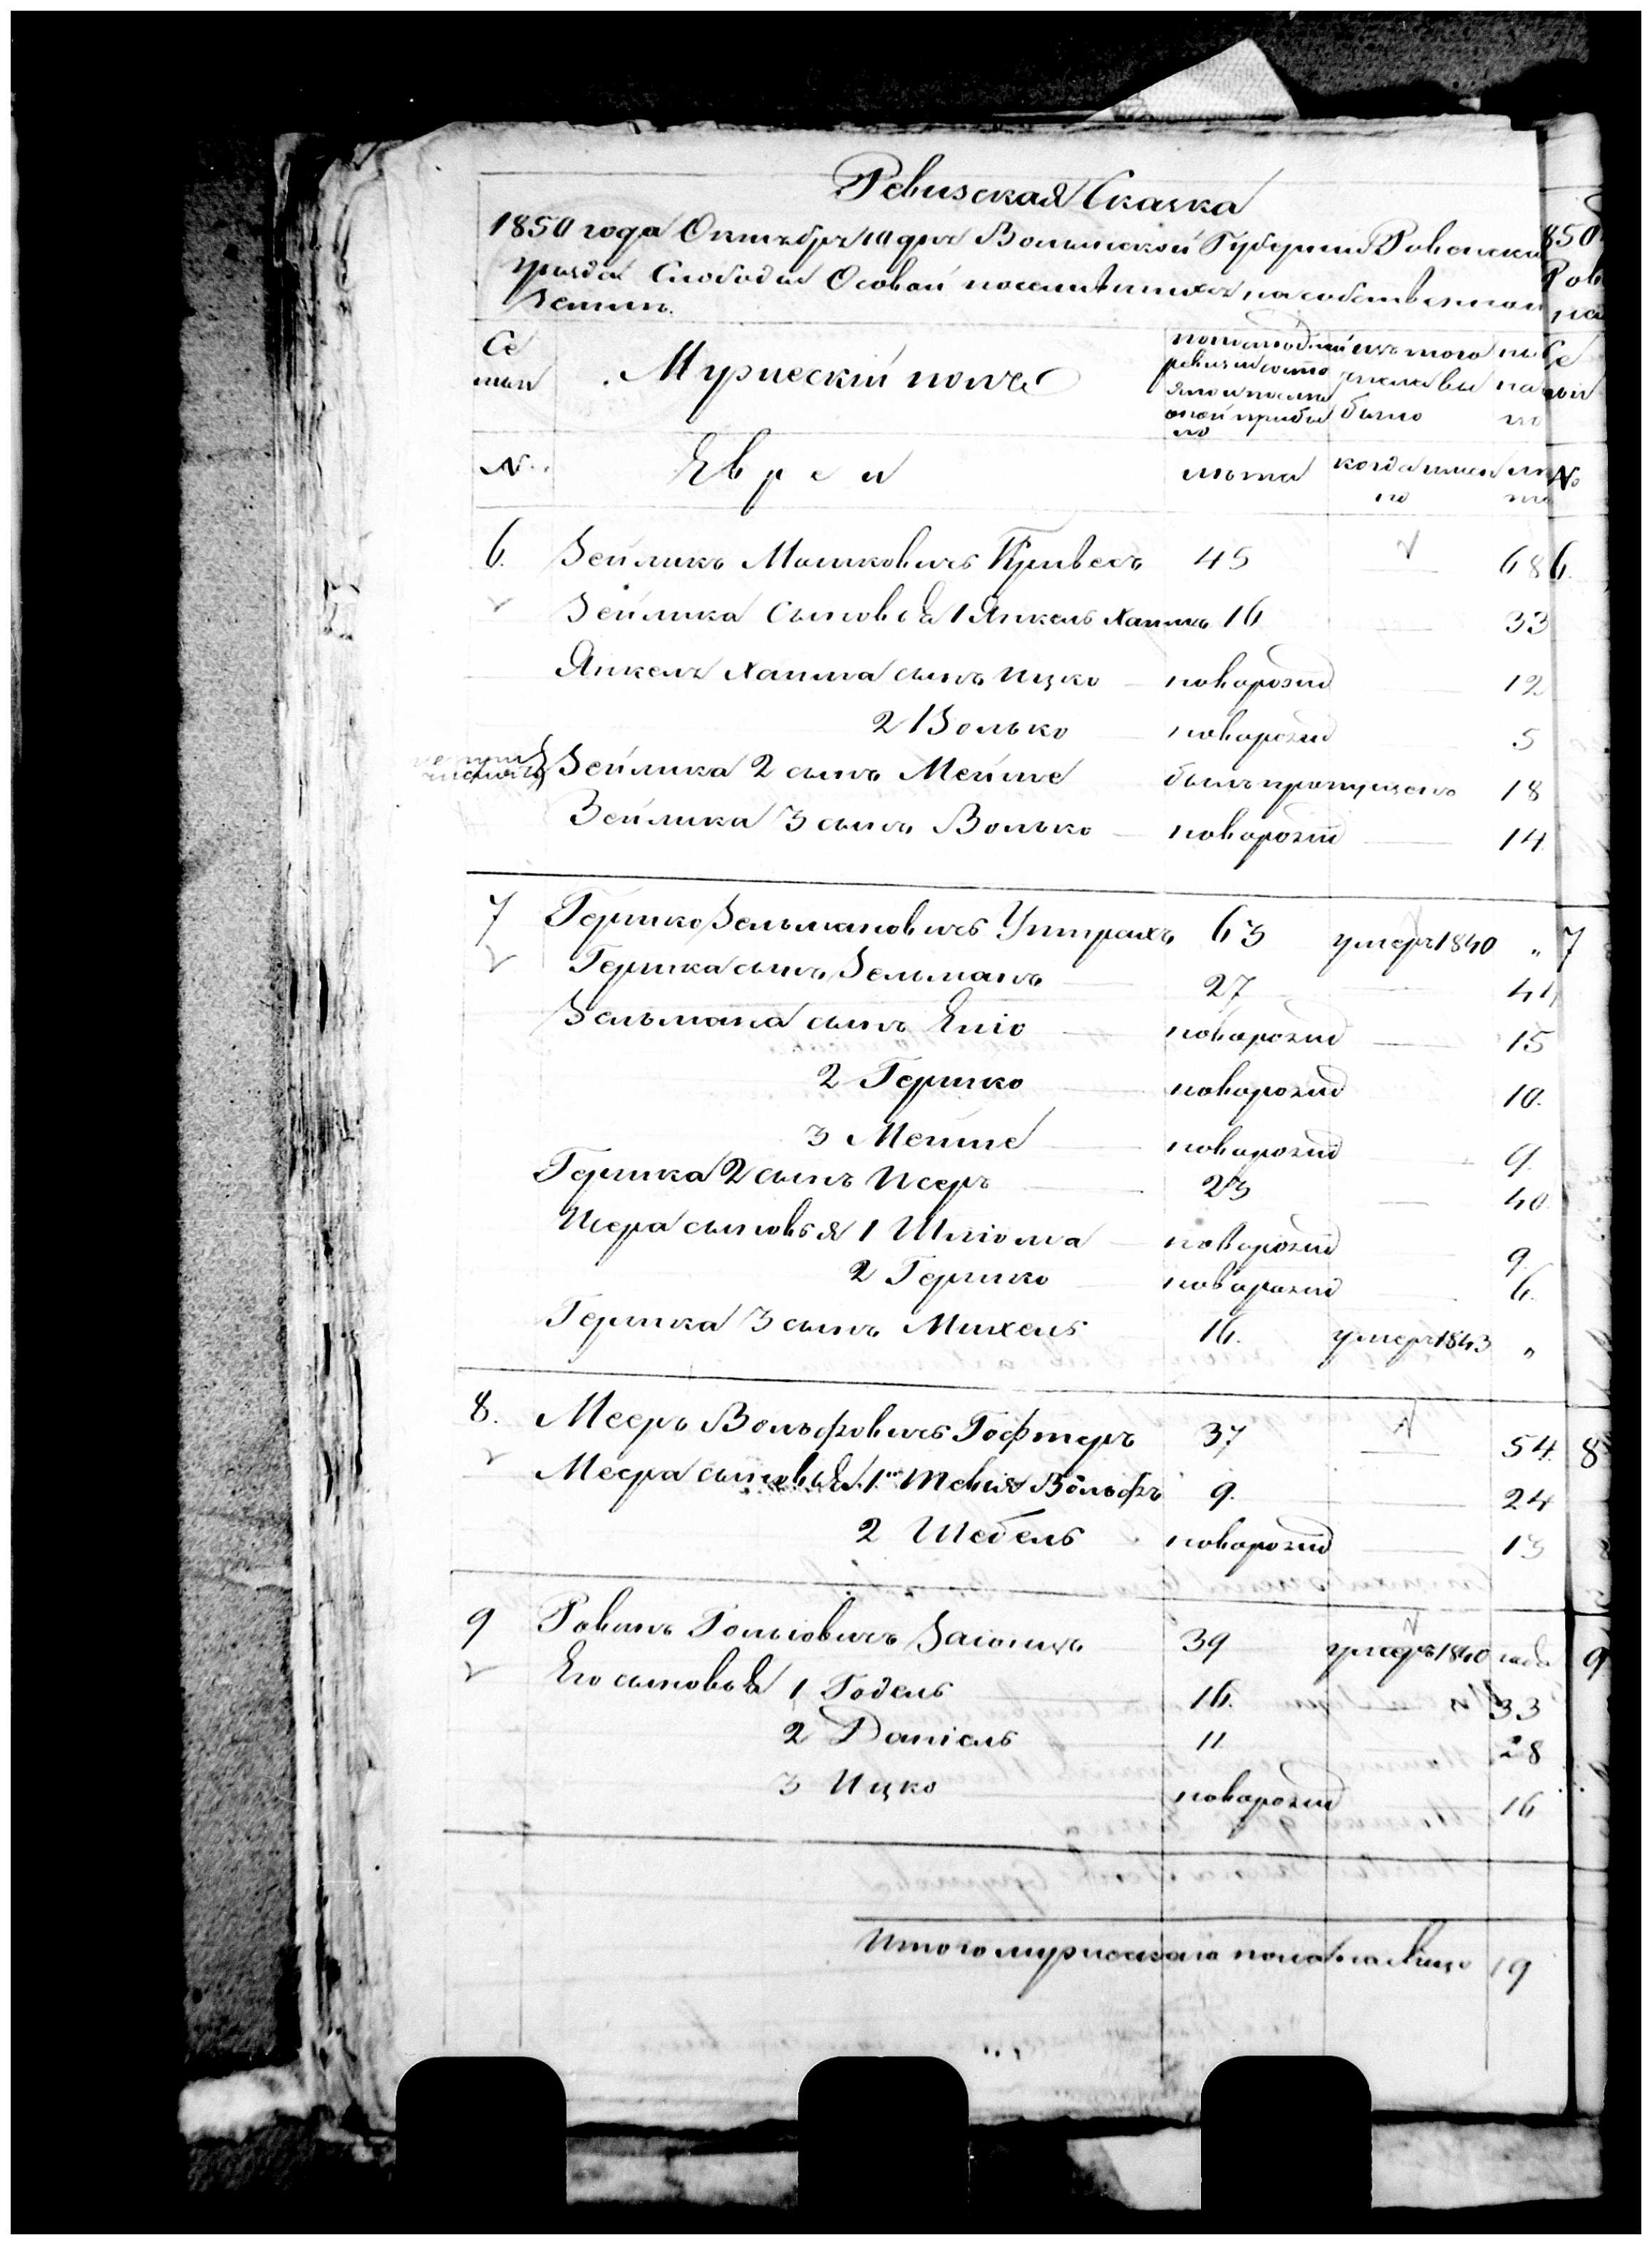 Ревизская Сказка
1850 года Октября 10 дня Волынской Губернии Ровенска
уезда Слободы Осовой поселившихся на собственной
земли.
Се
мьи
Мужескій полъ
по последней
ревизіи состо
яло и после
оной прибы
ло
изъ того
числа вы
было
№.
Евреи
лета
когда имен
но
6. Зейликъ Мошковичъ Привесъ 45 — 68
Зейлика сыновья 1 Янкель Хаимъ 16 — 33
Янкель Хаима сынъ Ицко новорожд 12
2 Волько новорожд 5
Зейлика 2 сынъ Мейше былъ пропущенъ 18
Зейлика 3 сынъ Волько новорожд — 14.
7 Гершко Зельмановичъ 63 умеръ 1840 „
Гершка сынъ Зельманъ 27 — 44
Зельмана сынъ Еліо новорожд — 15
2 Гершко новорожд 10.
3 Мейше новорожд 9.
Гершка 2 сынъ Исеръ 23 — 40.
Исера сыновья 1 Шліома новорожд 9.
2 Гершко новорожд 6.
Гершка 3 сынъ Михель 16. умеръ 1843 „
8. Мееръ Вольфовичъ Гофтеръ 37 — 54
Меера сыновья 1й Тевья Вольфъ 9. — 24
2 Шебель новорожд — 13
9 Рувинъ Гольовичъ Заіонцъ 39 умеръ 1840 года
Его сыновья 1 Годель 16. 33
2 Даніель 11 28
3 Ицко новорожд 16
Итого мужескаго пола на лицо 19